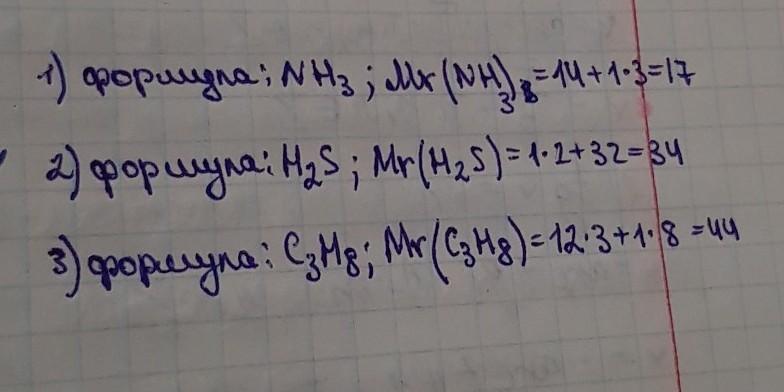 1) формула: NH₃; Mr(NH)₃=14+1·3=17
2) формула: H₂S; Mr(H₂S)=1·2+32=34
3) формула: C₃H₈; Mr(C₃H₈)=12·3+1·8=44